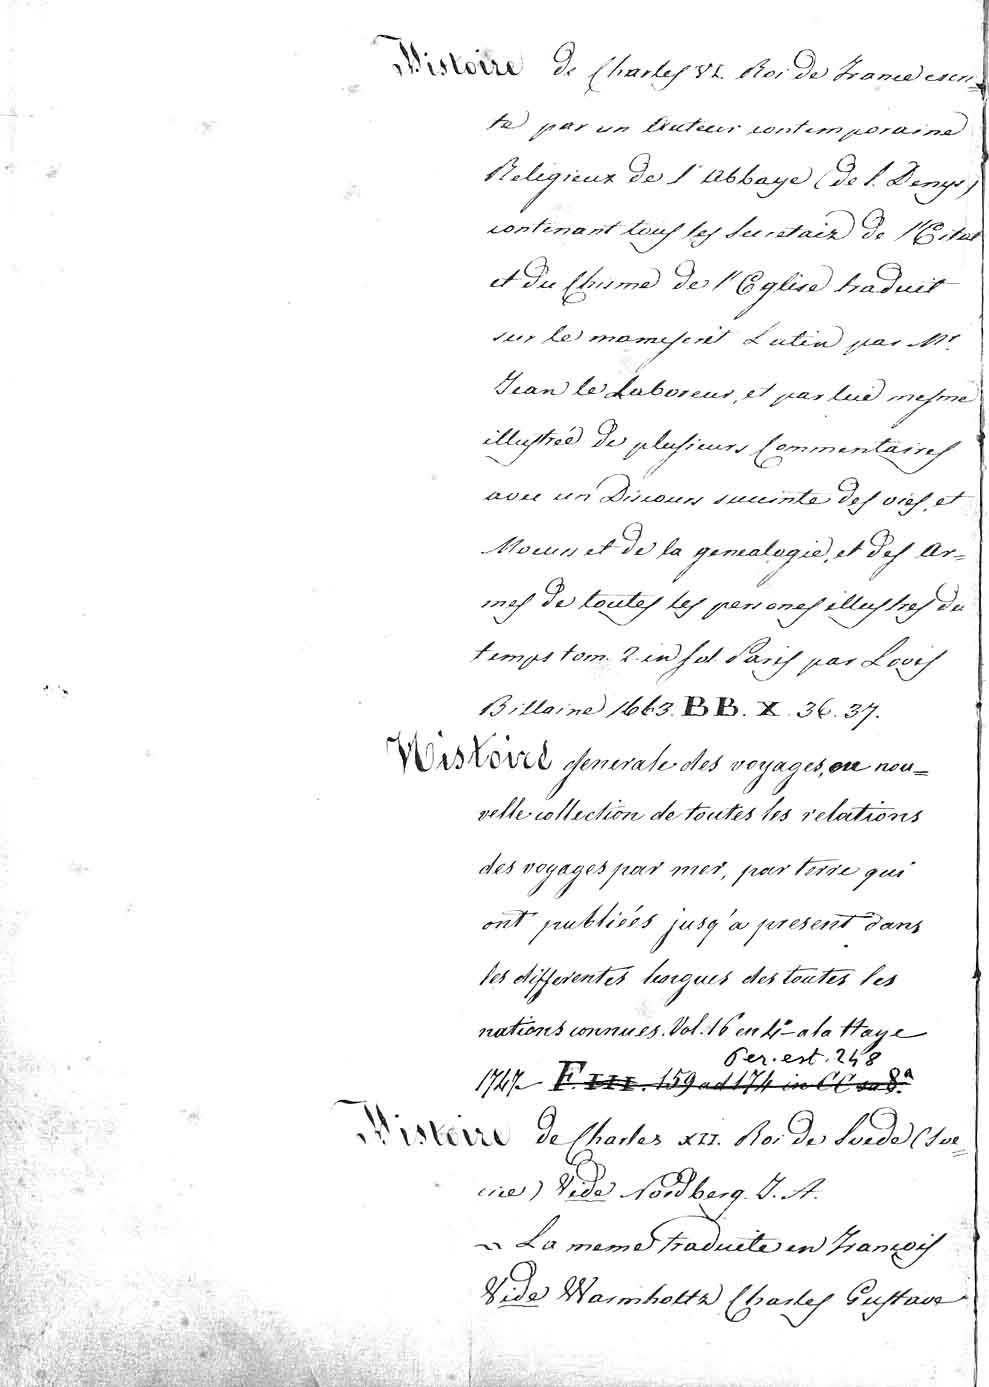 Histoire de Charles VI. Roi de France escri=
te par un Auteur contemporaine
Religieux de l'Abbaye (de S. Denys)
contenant tous les Secretaiz de l'Estat
et du Chisme de l'Eglise traduit
sur le manuscrit Latin par Mr.
Jean le Laboreur, et par lui mesme
illustrée de plusieurs Commentaires
avec un Discours succinte des vies, et
Moeurs et de la genealogie, et des Ar=
mes de toutes les personnes illustres du
temps tom. 2. in fol Paris par Louis
Billaine 1663. BB. X. 36. 37.
Histoire generale des voyages, ou nou=
velle collection de toutes les relations
des voyages par mer, par terre qui
ont publiées jusq'a present dans
les differentes langues des toutes les
nations connues. Vol. 16 en 4º a la Haye
Per. est. 248
1747 F. III. 159 ad 174 in CC 8.ª
Histoire de Charles XII. Roi de Suede (Sve=
cie) Vide Nordberg. J. A.
~ La meme traduite en François
Vide Warmholtz Charles Gustave